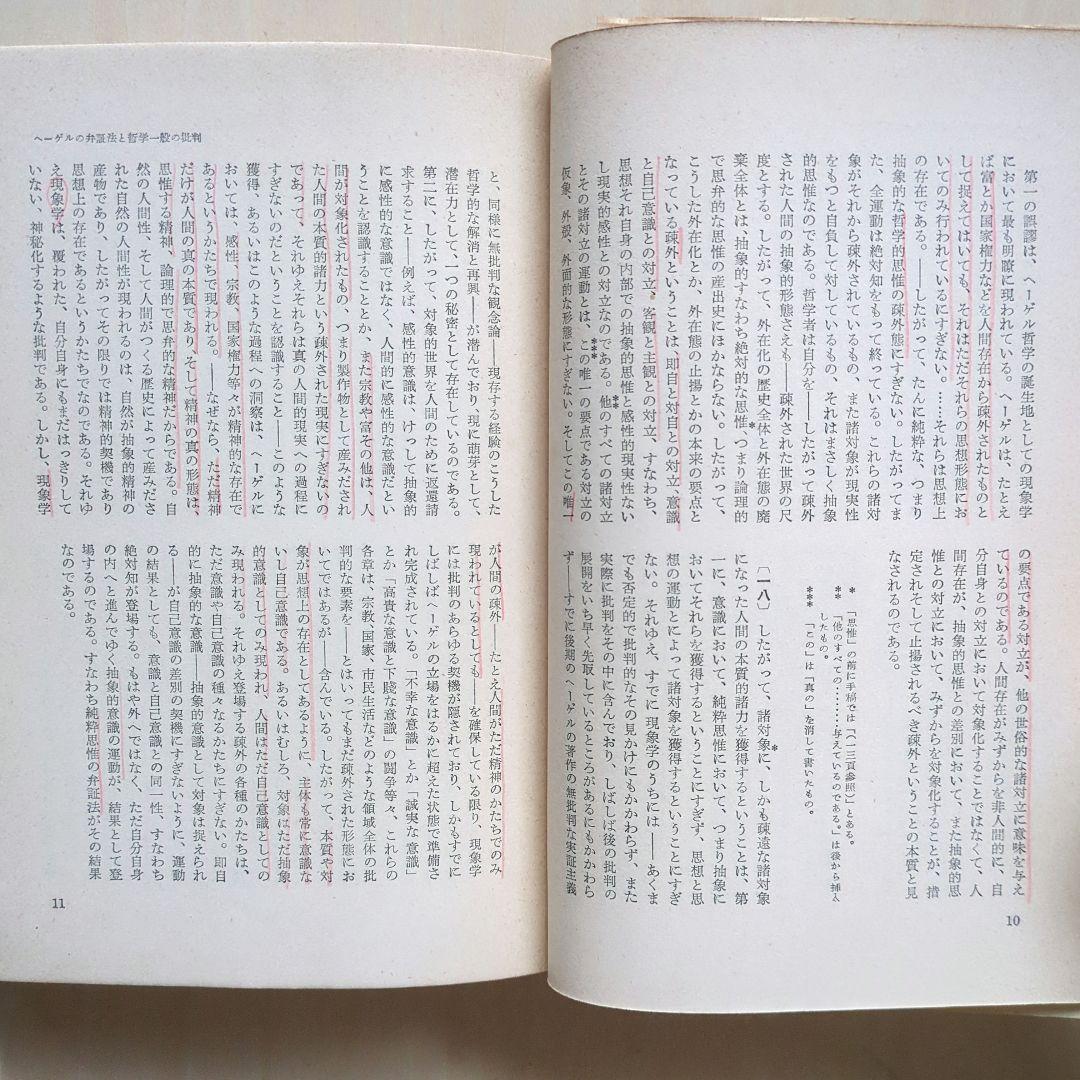 第一の誤謬は、ヘーゲル哲学の誕生地としての現象学
において最も明瞭に現われている。ヘーゲルは、たとえ
ば富とか国家権力などを人間存在から疎外されたものと
して捉えてはいても、それはただそれらの思想形態にお
いてのみ行われているにすぎない。……それらは思想上
の存在である。――したがって、たんに純粋な、つまり
抽象的な哲学的思惟の疎外態にすぎない。したがってま
た、全運動は絶対知をもって終っている。これらの諸対
象がそれから疎外されているもの、また諸対象が現実性
をもつと自負して対しているもの、それはまさしく抽象
的思惟なのである。哲学者は自分を――したがって疎外
された人間の抽象的形態さえも――疎外された世界の尺
度とする。したがって、外在化の歴史全体と外在態の廃
棄全体とは、抽象的すなわち絶対的な思惟*つまり論理的
で思弁的な思惟の産出史にほかならない。したがって、
こうした外在化とか、外在態の止揚とかの本来の要点と
なっている疎外ということは、即自と対自との対立、意識
と自己意識との対立、客観と主観との対立、すなわち、
思想それ自身の内部での抽象的思惟と感性的現実性ない
し現実的感性との対立なのである。他の**すべての諸対立
とその諸対立の運動とは、この***唯一の要点である対立の
仮象、外殻、外面的な形態にすぎない。そしてこの唯一
の要点である対立が、他の世俗的な諸対立に意味を与え
ているのである。人間存在がみずからを非人間的に、自
分自身との対立において対象化することではなくて、人
間存在が、抽象的思惟との差別において、また抽象的思
惟との対立において、みずからを対象化することが、措
定されそして止揚されるべき疎外ということの本質と見
なされるのである。
* 「思惟」の前に手稿では「(一三頁参照)」とある。
** 「他のすべての………与えているのである。」は後から挿入
したもの。
*** 「この」は「真の」を消して書いたもの。
〔一八〕 したがって、諸対象*に、しかも疎遠な諸対象
になった人間の本質的諸力を獲得するということは、第
一に、意識において、純粋思惟において、つまり抽象に
おいてそれらを獲得するということにすぎず、思想と思
想の運動とによって諸対象を獲得するということにすぎ
ない。それゆえ、すでに現象学のうちには――あくま
でも否定的で批判的なその見かけにもかかわらず、また
実際に批判をその中に含んでおり、しばしば後の批判の
展開をいち早く先取しているところがあるにもかかわら
ず――すでに後期のヘーゲルの著作の無批判な実証主義
10
ヘーゲルの弁証法と哲学一般の批判
と、同様に無批判な観念論――現存する経験のこうした
哲学的な解消と再興――が潜んでおり、現に萌芽として、
潜在力として、一つの秘密として存在しているのである。
第二に、したがって、対象的世界を人間のために返還請
求すること――例えば、感性的意識は、けっして抽象的
に感性的な意識ではなく、人間的に感性的な意識だとい
うことを認識することとか、また宗教や富その他は、人
間が対象化されたもの、つまり製作物として産みだされ
た人間の本質的諸力という疎外された現実にすぎないの
であって、それゆえそれらは真の人間的現実への過程に
すぎないのだということを認識すること――このような
獲得、あるいはこのような過程への洞察は、ヘーゲルに
おいては、感性、宗教、国家権力等々が精神的な存在で
あるというかたちで現われる。――なぜなら、ただ精神
だけが人間の真の本質であり、そして精神の真の形態は、
思惟する精神、論理的で思弁的な精神だからである。自
然の人間性、そして人間がつくる歴史によって産みださ
れた自然の人間性が現われるのは、自然が抽象的精神の
産物であり、したがってその限りでは精神的契機であり
思想上の存在であるというかたちでなのである。それゆ
え現象学は、覆われた、自分自身にもまだはっきりして
いない、神秘化するような批判である。しかし、現象学
が人間の疎外――たとえ人間がただ精神のかたちでのみ
現われているとしても――を確保している限り、現象学
には批判のあらゆる契機が隠されており、しかもすでに
しばしばヘーゲルの立場をはるかに超えた状態で準備さ
れ完成されている。「不幸な意識」とか「誠実な意識」
とか「高貴な意識と下賤な意識」の闘争等々、これらの
各章は、宗教、国家、市民生活などのような領域全体の批
判的な要素を――とはいってもまだ疎外された形態にお
いてではあるが――含んでいる。したがって、本質や対
象が思想上の存在としてあるように、主体も常に意識な
いし自己意識である。あるいはむしろ、対象はただ抽象
的意識としてのみ現われ、人間はただ自己意識としての
み現われる。それゆえ登場する疎外の各種のかたちは、
ただ意識や自己意識の種々なるかたちにすぎない。即自
的に抽象的な意識――抽象的意識として対象は捉えられ
る――が自己意識の差別の契機にすぎないように、運動
の結果としても、意識と自己意識との同一性、すなわち
絶対知が登場する。もはや外へではなく、ただ自分自身
の内へと進んでゆく抽象的意識の運動が、結果として登
場するのである。すなわち純粋思惟の弁証法がその結果
なのである。
11